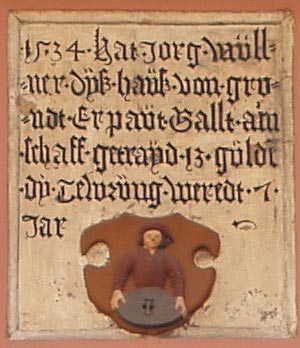 ·1534· Hat Jorg· Wüll-
ner· dyß· hauß· von· gru-
ndt· Erpaut· Gallt· a͑in
schaff· getrayd· 13· güldē
dy· Tewrüng· weredt· 7·
Jar